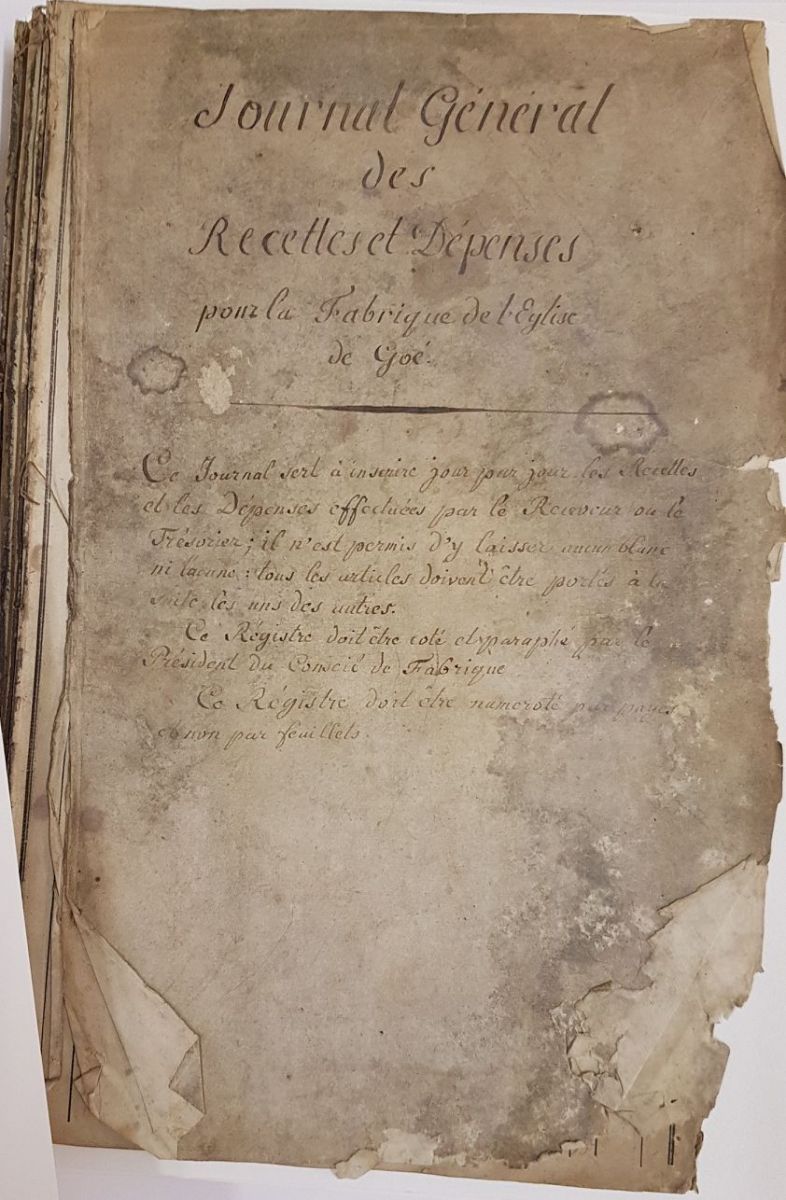 Journal Général
des
Recettes et Dépenses
pour la Fabrique de l'Eglise
de Goé.
Ce Journal sert à inscrire jour par jour les Recettes
et les Dépenses effectuées par le Receveur ou le
Trésorier; il n'est permis d'y laisser aucun blanc
ni lacune: tous les articles doivent être portés à la
suite les uns des autres.
Ce Régistre doit être coté et paraphé par le
Président du Conseil de Fabrique
Ce Régistre doit être numeroté par pages
et non par feuillets.